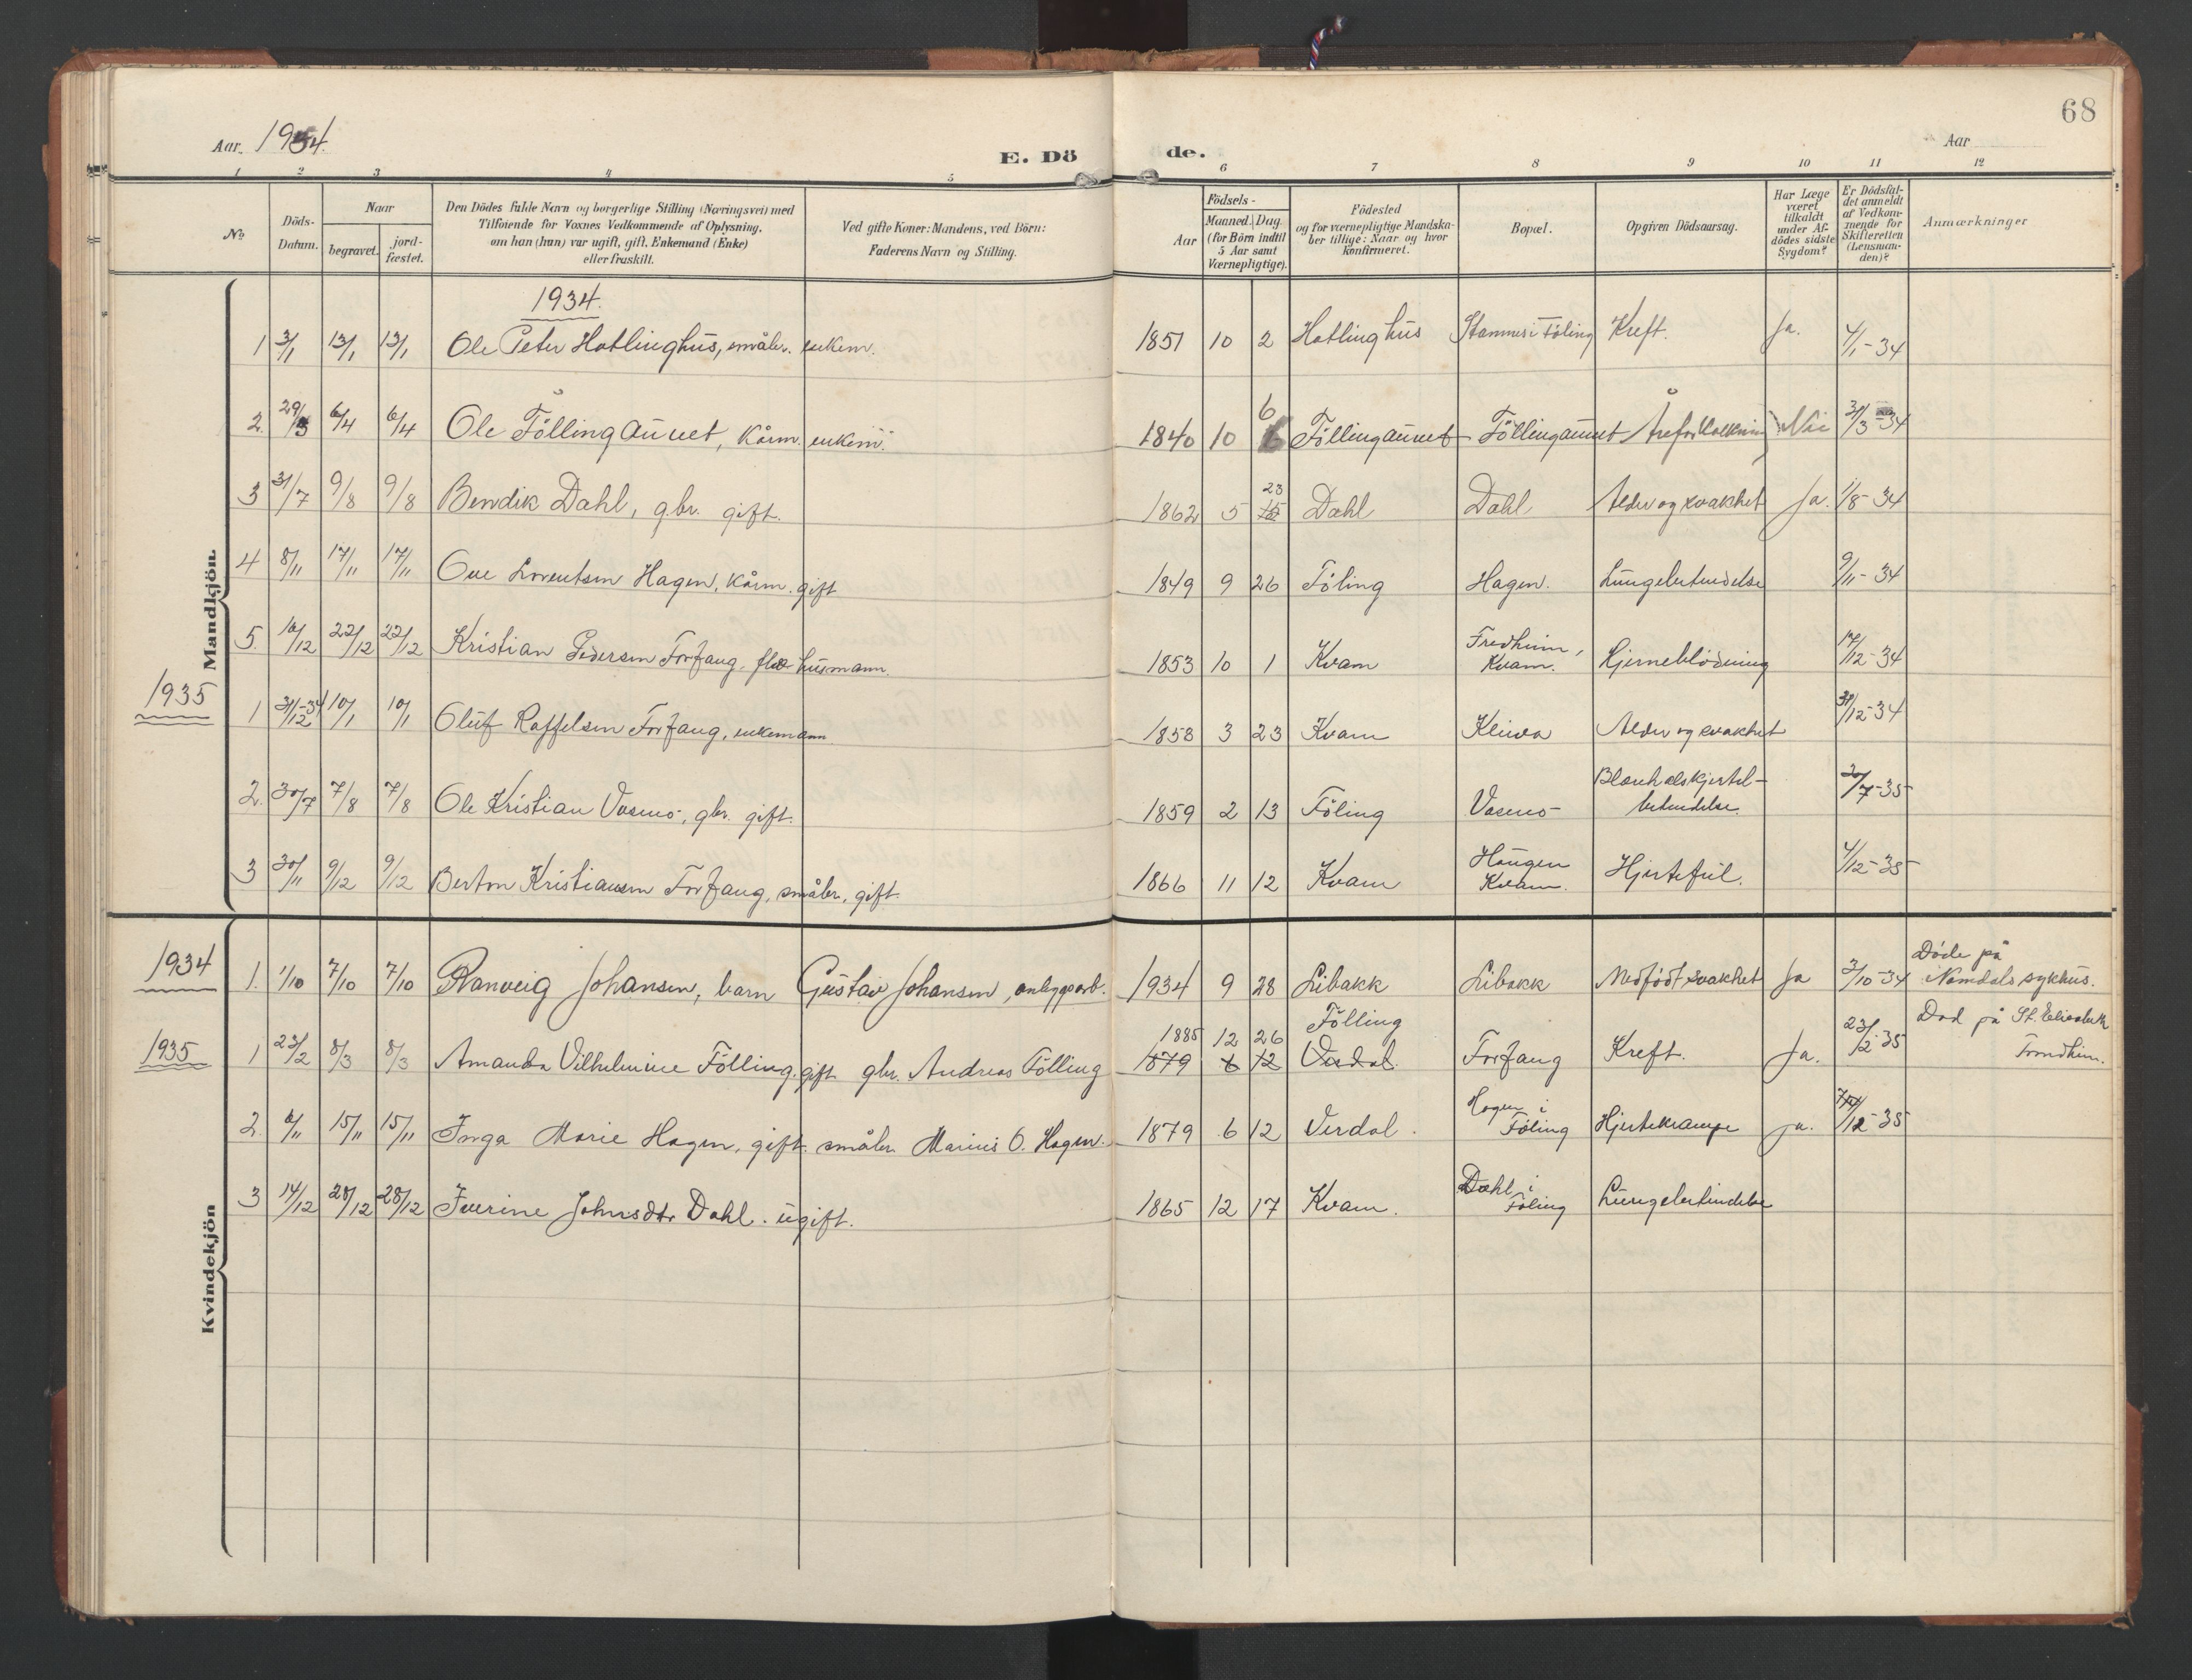 68
Aar. 1934.
E. Dö
de.
Aar
1 2 3 4 5 6 7 8 9 10 11 12
No
Döds-Datum.
Naar
begravet.
jord-fæstet.
Den Dödes fulde Navn og borgerlige Stilling (Næringsvei) med
Tilföiende for Voxnes Vedkommende af Oplysning,
om han (hun) var ugift, gift, Enkemand (Enke)
eller fraskilt.
Ved gifte Koner: Mandens, ved Börn:
Faderens Navn og Stilling.
Födsels-
Aar
Maaned. Dag.
(for Börn indtil
5 Aar samt
Værnepligtige).
Födested
og for værnepligtige Mandska-
ber tillige: Naar og hvor
konfirmeret.
Bopæl.
Opgiven Dödsaarsag.
Har Læge
været
tilkaldt
under Af-
dödes sidste
Sygdom?
Er Dödsfal-
det anmeldt
af Vedkom-
mende for
Skifteretten
(Lensman-
den)?
Anmærkninger
Mandkjön
1934.
1 3/1 13/1 13/1 Ole Peter Hatlinghus, småbr. enkem. 1851 10 2 Hatlinghus Stamnes i Föling Kreft. Ja. 4/1-34
2. 29/3 6/4 6/4 Ole Föllingaunet, kårm. enkem. 1840 10 6 Föllingaunet Föllingaunet Åreforkalkning Nei 31/3-34
3 31/7 9/8 9/8 Bendik Dahl, gbr. gift. 1862 5 23 15 Dahl Dahl Alder og svakhet Ja. 1/8-34
4 8/11 17/11 17/11 Ove Lorentsen Hagen, kårm. gift 1849 9 26 Föling Hagen. Lungebetendelse 9/11-34
5. 16/12 22/12 22/12 Kristian Pedersen Forfang, husmann. 1853 10 1 Kvam Fredheim, Kvam. Hjerneblödning 17/12-34
1935
1 31/12-34 10/1 10/1 Oluf Kaffelsen Forfang, enkemann 1858 3 23 Kvam Kleiva Alder og svakhet 31/12-34
2. 30/7 7/8 7/8 Ole Kristian Vasmo, gbr. gift. 1859 2 13 Föling Vasmo Blærehalskjertel-
betendelse. 30/7-35
3 30/11 9/12 9/12 Berton Kristiansen Forfang, småbr, gift. 1866 11 12 Kvam Haugen Kvam. Hjertefeil. 4/12-35
Kvindekjön
1934
1. 1/10 7/10 7/10 Ranveig Johansen, barn Gustav Johansen, anleggsarb. 1934 9 28 Libakk Libakk Medfödt svakhet Ja 3/10-34 Döde på
Namdals sykhus.
1935
1 23/2 8/3 8/3 Amanda Vilhelmine Fölling. gift gbr. Andreas Fölling 1885 12 26 Fölling
1879 6 12 Verdal. Forfang Kreft. Ja. 23/2-35 Död på St. Elisabeth
Trondheim.
2. 6/11 15/11 15/11 Inga Marie Hagen, gift. småbr. Marius O. Hagen. 1879 6 12 Verdal. Hagen i Föling Hjertekrampe ja. 12-35
3 14/12 28/12 28/12 Iverine Johnsdtr Dahl. ugift. 1865 12 17 Kvam. Dahl i Föling Lungebetendelse